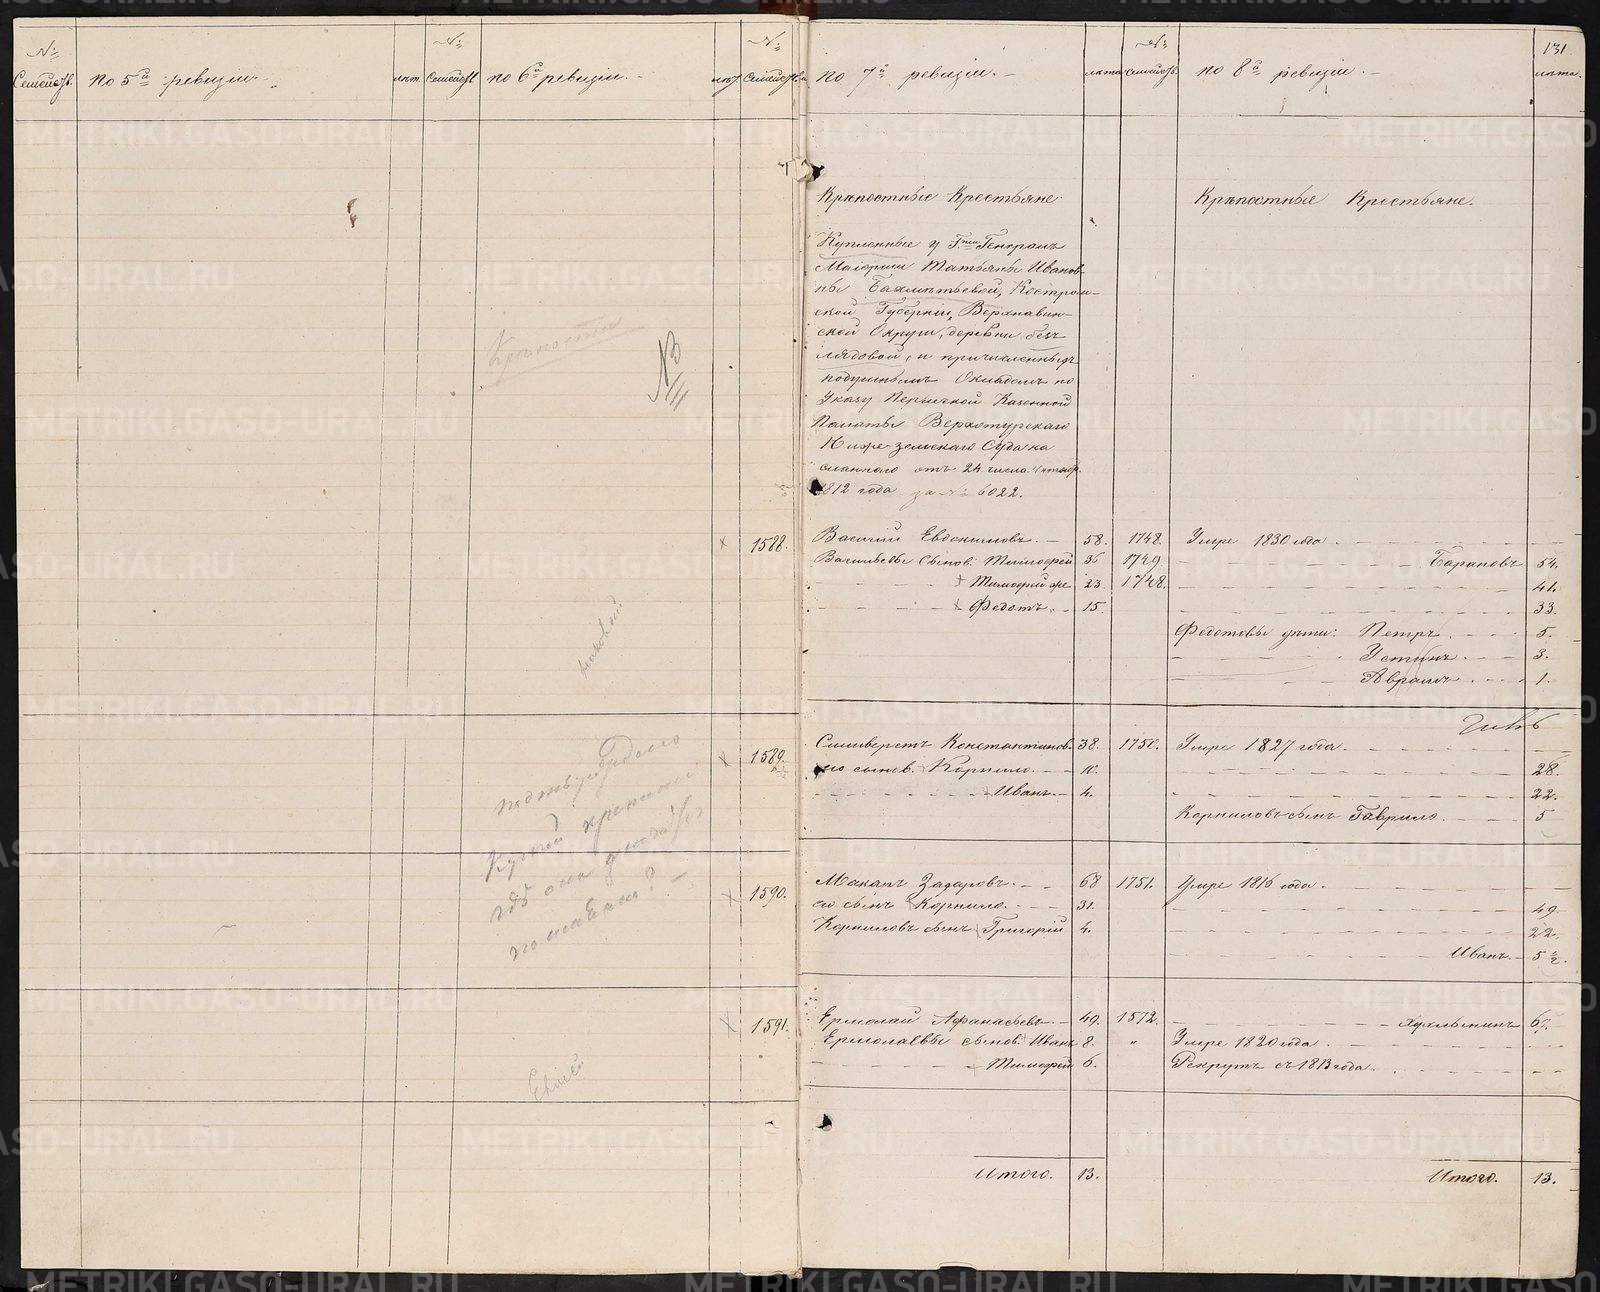 №
Семейств.
по 5й ревизіи.
лѣт.
№
Семейств.
по 6й ревизіи.
лѣт.
№
Семейств.
по 7й ревизіи.
лѣта
№
семейств.
по 8й ревизіи.
131
лѣта.
Крѣпостные Крестьяне
Крѣпостные Крестьяне.
Купленные у Гжи Генералъ
Маіорши Татьяны Иванов-
ны Бахметьевой, Костром-
ской Губерніи, Верхнавин-
ской Округи, деревни Без
и причисленныхъ
подушнымъ Окладомъ по
Указу Пермской Казенной
Палаты Верхотурскаго
Ниже-земскаго Суда на
сланнаго отъ 24 числа Октябр.
1812 года за № 6022.
Крѣпостные
NB
1588. Василій Евдокимовъ. 58. 1748. Умре 1830 года.
Васильевы сынов. Тимофей 36 1749 Барановъ 54.
Тимофей же 23. 1748. 41.
Федотъ 15. 33.
Федотовы дѣти: Петръ 5.
Устинъ 3.
Аврамъ 1.
1589. Силиверстъ Константинов. 38. 1750. Умре 1827 года.
его сынов. Корнило. 10. 28.
Иванъ 4. 22.
Корниловъ сынъ Гаврило. 5
1590. Макаръ Захаровъ. 68 1751. Умре 1816 года.
его сынъ Корнило. 31. 49
Корниловъ сынъ Григорій 4. 22.
Иванъ 5 ½.
1591. Ермолай Афанасьевъ 49. 1572. 67.
Ермолаевы сынов. Иванъ 8. " Умре 1820 года.
Тимофей 6. Рекрутъ съ 1813 года.
Итого. 13.
Итого. 13.
METRIKI.GASO-URAL.RU